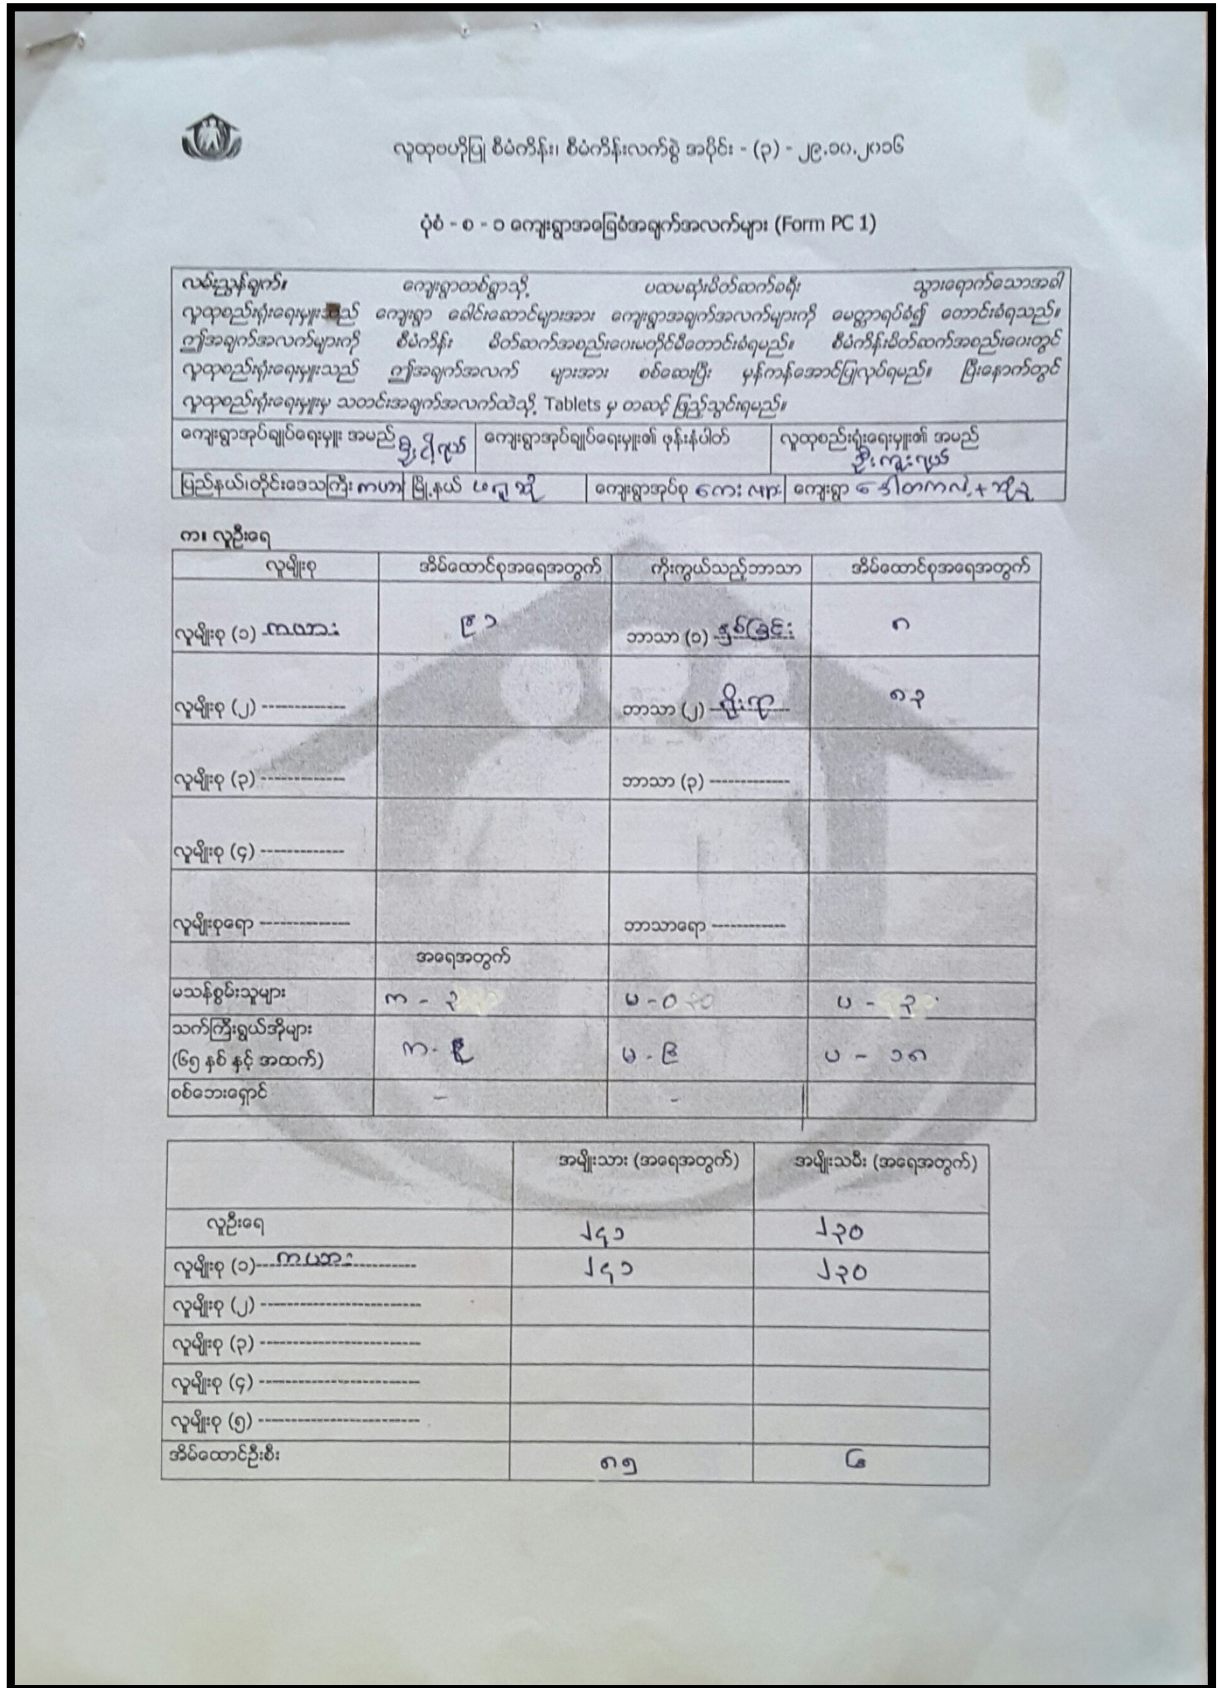 လူထုဗဟိုပြု စီမံကိန်း၊ စီမံကိန်းလက်စွဲ အပိုင်း - (၃) - ၂၉.၁၀.၂၀၁၆
ပုံစံ - စ - ၁ ကျေးရွာအခြေခံအချက်အလက်များ (Form PC 1)
လမ်းညွှန်ချက်။ ကျေးရွာတစ်ရွာသို့ ပထမဆုံးမိတ်ဆက်ခရီး သွားရောက်သောအခါ
လူထုစည်းရုံးရေးမှူးသည် ကျေးရွာ ခေါင်းဆောင်များအား ကျေးရွာအချက်အလက်များကို မေတ္တာရပ်ခံ၍ တောင်းခံရသည်။
ဤအချက်အလက်များကို စီမံကိန်း မိတ်ဆက်အစည်းဝေးမတိုင်မီတောင်းခံရမည်။ စီမံကိန်းမိတ်ဆက်အစည်းဝေးတွင်
လူထုစည်းရုံးရေးမှူးသည် ဤအချက်အလက် များအား စစ်ဆေးပြီး မှန်ကန်အောင်ပြုလုပ်ရမည်။ ပြီးနောက်တွင်
လူထုစည်းရုံးရေးမှူးမှ သတင်းအချက်အလက်ထဲသို့ Tablets မှ တဆင့် ဖြည့်သွင်းရမည်။
ကျေးရွာအုပ်ချုပ်ရေးမှူး အမည် ကျေးရွာအုပ်ချုပ်ရေးမှူး၏ ဖုန်းနံပါတ် လူထုစည်းရုံးရေးမှူး၏ အမည်
ပြည်နယ်၊တိုင်းဒေသကြီး ကယား မြို့နယ် ဖရူဆို ကျေးရွာအုပ်စု ကေးလျား ကျေးရွာ ဒေါတကလဲ့
က။ လူဦးရေ
လူမျိုးစု အိမ်ထောင်စုအရေအတွက် ကိုးကွယ်သည့်ဘာသာ အိမ်ထောင်စုအရေအတွက်
လူမျိုးစု (၁) ကယား ၉၁ ဘာသာ (၁) နှစ်ခြင်း ၈
လူမျိုးစု (၂) ------------- ဘာသာ (၂) ရိုးရာ ၈၃
လူမျိုးစု (၃) ------------- ဘာသာ (၃) -------------
လူမျိုးစု (၄) -------------
လူမျိုးစုရော -------------- ဘာသာရော ------------
အရေအတွက်
မသန်စွမ်းသူများ က - ၃ မ - ၀ ပ - ၃
သက်ကြီးရွယ်အိုများ
(၆၅ နှစ် နှင့် အထက်) က - ၉ မ - ၉ ပ - ၁၈
စစ်ဘေးရှောင် - -
အမျိုးသား (အရေအတွက်) အမျိုးသမီး (အရေအတွက်)
လူဦးရေ ၂၄၁ ၂၃၀
လူမျိုးစု (၁) ကယား ၂၄၁ ၂၃၀
လူမျိုးစု (၂) -------------------------
လူမျိုးစု (၃) -------------------------
လူမျိုးစု (၄) -------------------------
လူမျိုးစု (၅) -------------------------
အိမ်ထောင်ဦးစီး ၈၅ ၆